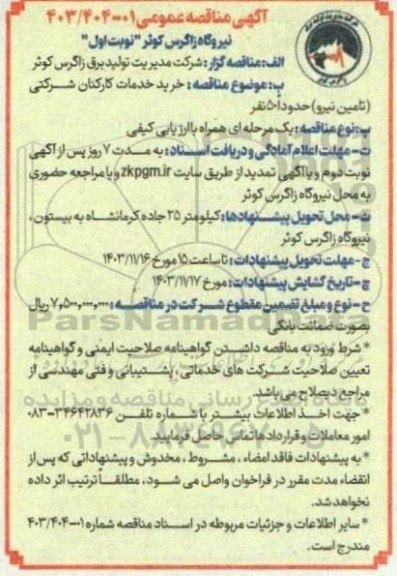 آگهی مناقصه عمومی ۰۱-۴۰۳/۴۰۴
نیروگاه زاگرس کوثر "نوبت اول"
الف: مناقصه گزار: شرکت مدیریت تولید برق زاگرس کوثر
ب: موضوع مناقصه : خرید خدمات کارکنان شرکتی
(تامین نیرو) حدودا ۵۰ نفر
پ: نوع مناقصه: یک مرحله ای همراه با ارزیابی کیفی
ت- مهلت اعلام آمادگی و دریافت اسناد: به مدت ۷ روز پس از آگهی
نوبت دوم و یا آگهی تمدید از طریق سایت zkpgm.ir و یا مراجعه حضوری
به محل نیروگاه زاگرس کوثر
ث- محل تحویل پیشنهادها: کیلومتر ۲۵ جاده کرمانشاه به بیستون،
نیروگاه زاگرس کوثر
ج- مهلت تحویل پیشنهادات: تا ساعت ۱۵ مورخ ۱۴۰۳/۱۱/۱۶
چ- تاریخ گشایش پیشنهادات: مورخ ۱۴۰۳/۱۱/۱۷
ح- نوع و مبلغ تضمین مقطوع شرکت در مناقصه: ۷,۵۰۰,۰۰۰,۰۰۰ ریال
بصورت ضمانت بانکی
* شرط ورود به مناقصه داشتن گواهینامه صلاحیت ایمنی و گواهینامه
تعیین صلاحیت شرکت های خدماتی، پشتیبانی و فنی مهندسی از
مراجع ذیصلاح می باشد.
* جهت اخذ اطلاعات بیشتر با شماره تلفن ۳۴۶۴۲۸۳۶-۰۸۳
امور معاملات و قراردادها تماس حاصل فرمایید
* به پیشنهادات فاقد امضاء ، مشروط ، مخدوش و پیشنهاداتی که پس از
انقضاء مدت مقرر در فراخوان واصل می شود، مطلقاً ترتیب اثر داده
نخواهد شد.
* سایر اطلاعات و جزئیات مربوطه در اسناد مناقصه شماره ۰۱-۴۰۳/۴۰۴
مندرج است.
ParsNamadData